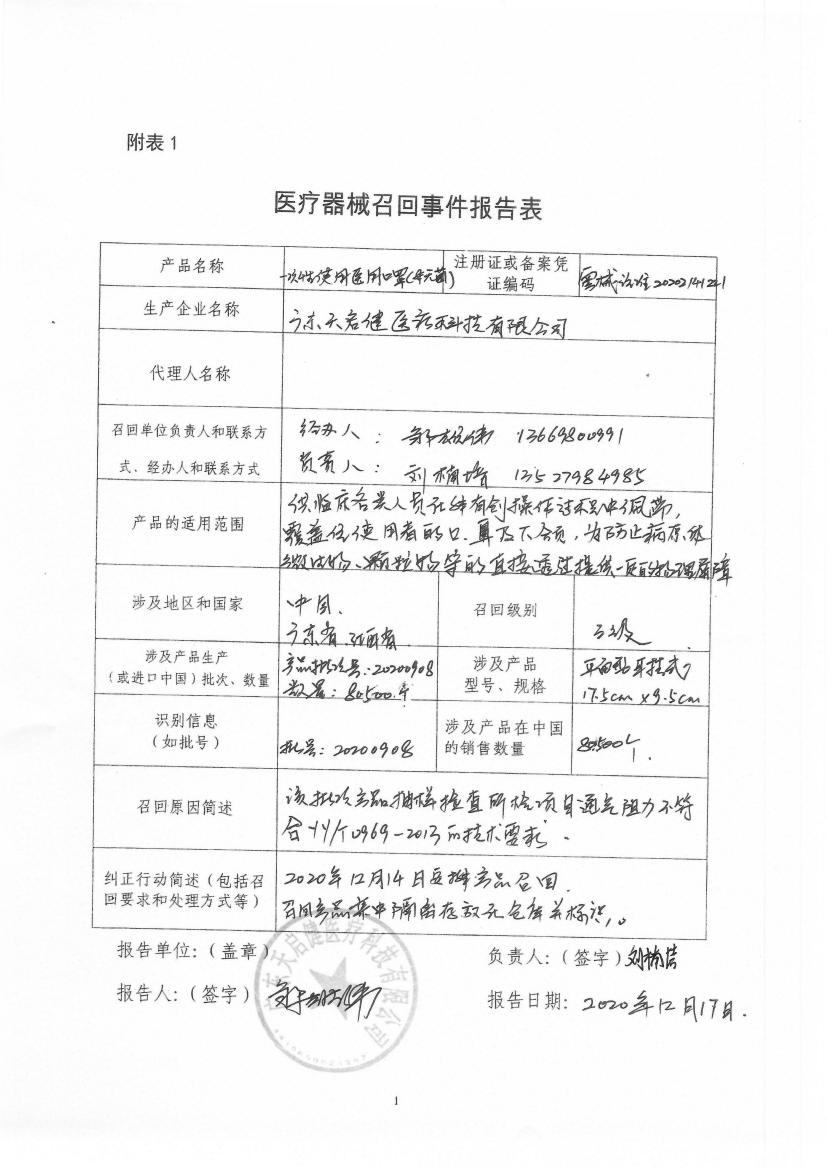 附表 1
医疗器械召回事件报告表
产品名称
一次性使用医用口罩(非无菌)
注册证或备案凭
证编码
粤械注准20202141221
生产企业名称
广东天启健医疗科技有限公司
代理人名称
召回单位负责人和联系方
式、经办人和联系方式
经办人： 13669800991
负责人： 刘楠 13527984985
产品的适用范围
供临床各类人员在非有创操作过程中佩带,
覆盖住使用者的口、鼻及下颌,为防止病原体
微生物、颗粒物等的直接透过提供一定的物理屏障
涉及地区和国家
中国、
广东省、江西省
召回级别
三级
涉及产品生产
（或进口中国）批次、数量
产品批次号:20200908
数量：80500个
涉及产品
型号、规格
平面型耳挂式
17.5cm x 9.5cm
识别信息
（如批号）
批号：20200908
涉及产品在中国
的销售数量
80500个.
召回原因简述
该批次产品抽样检查所检项目通气阻力不符
合YY/T0969-2013的技术要求.
纠正行动简述（包括召
回要求和处理方式等）
2020年12月14日安排产品召回.
召回产品集中隔离存放于仓库并标识。
报告单位：（盖章）
负责人：（签字）刘楠
报告人：（签字）
报告日期： 2020年12月17日.
广东天启健医疗科技有限公司
1